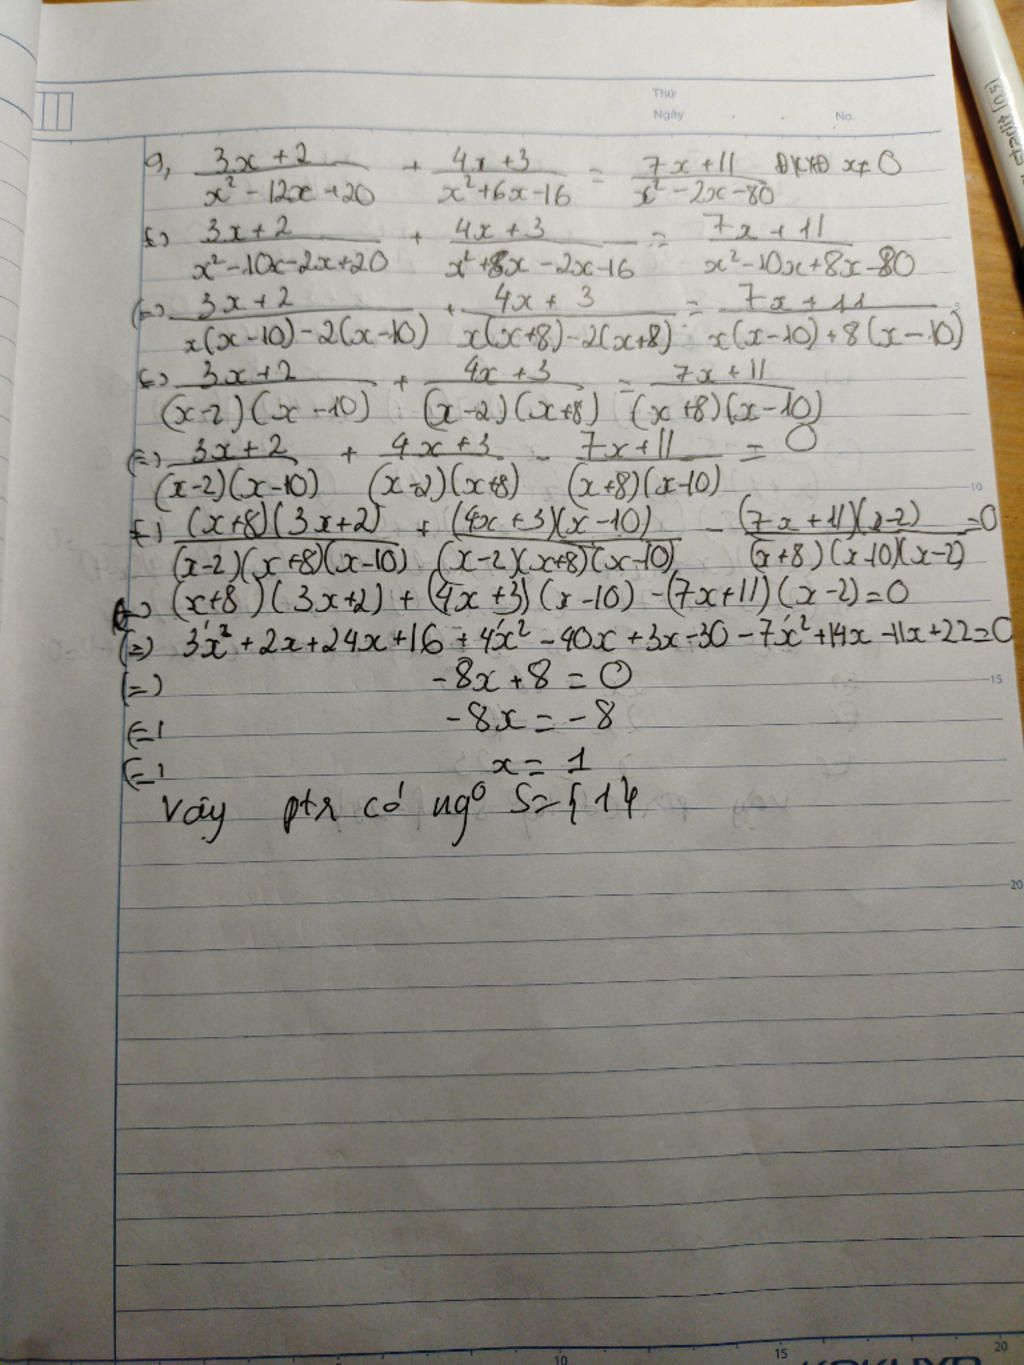 Thứ
Ngày . . No.
g, (3x+2)/(x²-12x+20) + (4x+3)/(x²+6x-16) = (7x+11)/(x²-2x-80) ĐKXĐ x≠0
(=) (3x+2)/(x²-10x-2x+20) + (4x+3)/(x²+8x-2x-16) = (7x+11)/(x²-10x+8x-80)
(=) (3x+2)/(x(x-10)-2(x-10)) + (4x+3)/(x(x+8)-2(x+8)) = (7x+11)/(x(x-10)+8(x-10))
(=) (3x+2)/((x-2)(x-10)) + (4x+3)/((x-2)(x+8)) = (7x+11)/((x+8)(x-10))
(=) (3x+2)/((x-2)(x-10)) + (4x+3)/((x-2)(x+8)) - (7x+11)/((x+8)(x-10)) = 0
(=) ((x+8)(3x+2))/((x-2)(x+8)(x-10)) + ((4x+3)(x-10))/((x-2)(x+8)(x-10)) - ((7x+11)(x-2))/((x+8)(x-10)(x-2)) = 0
(=) (x+8)(3x+2) + (4x+3)(x-10) - (7x+11)(x-2) = 0
(=) 3x²+2x+24x+16+4x²-40x+3x-30-7x²+14x-11x+22=0
(=) -8x+8=0
(=) -8x=-8
(=) x=1
Vậy ptr có ngº S={1}
5
10
15
20
10 15 20